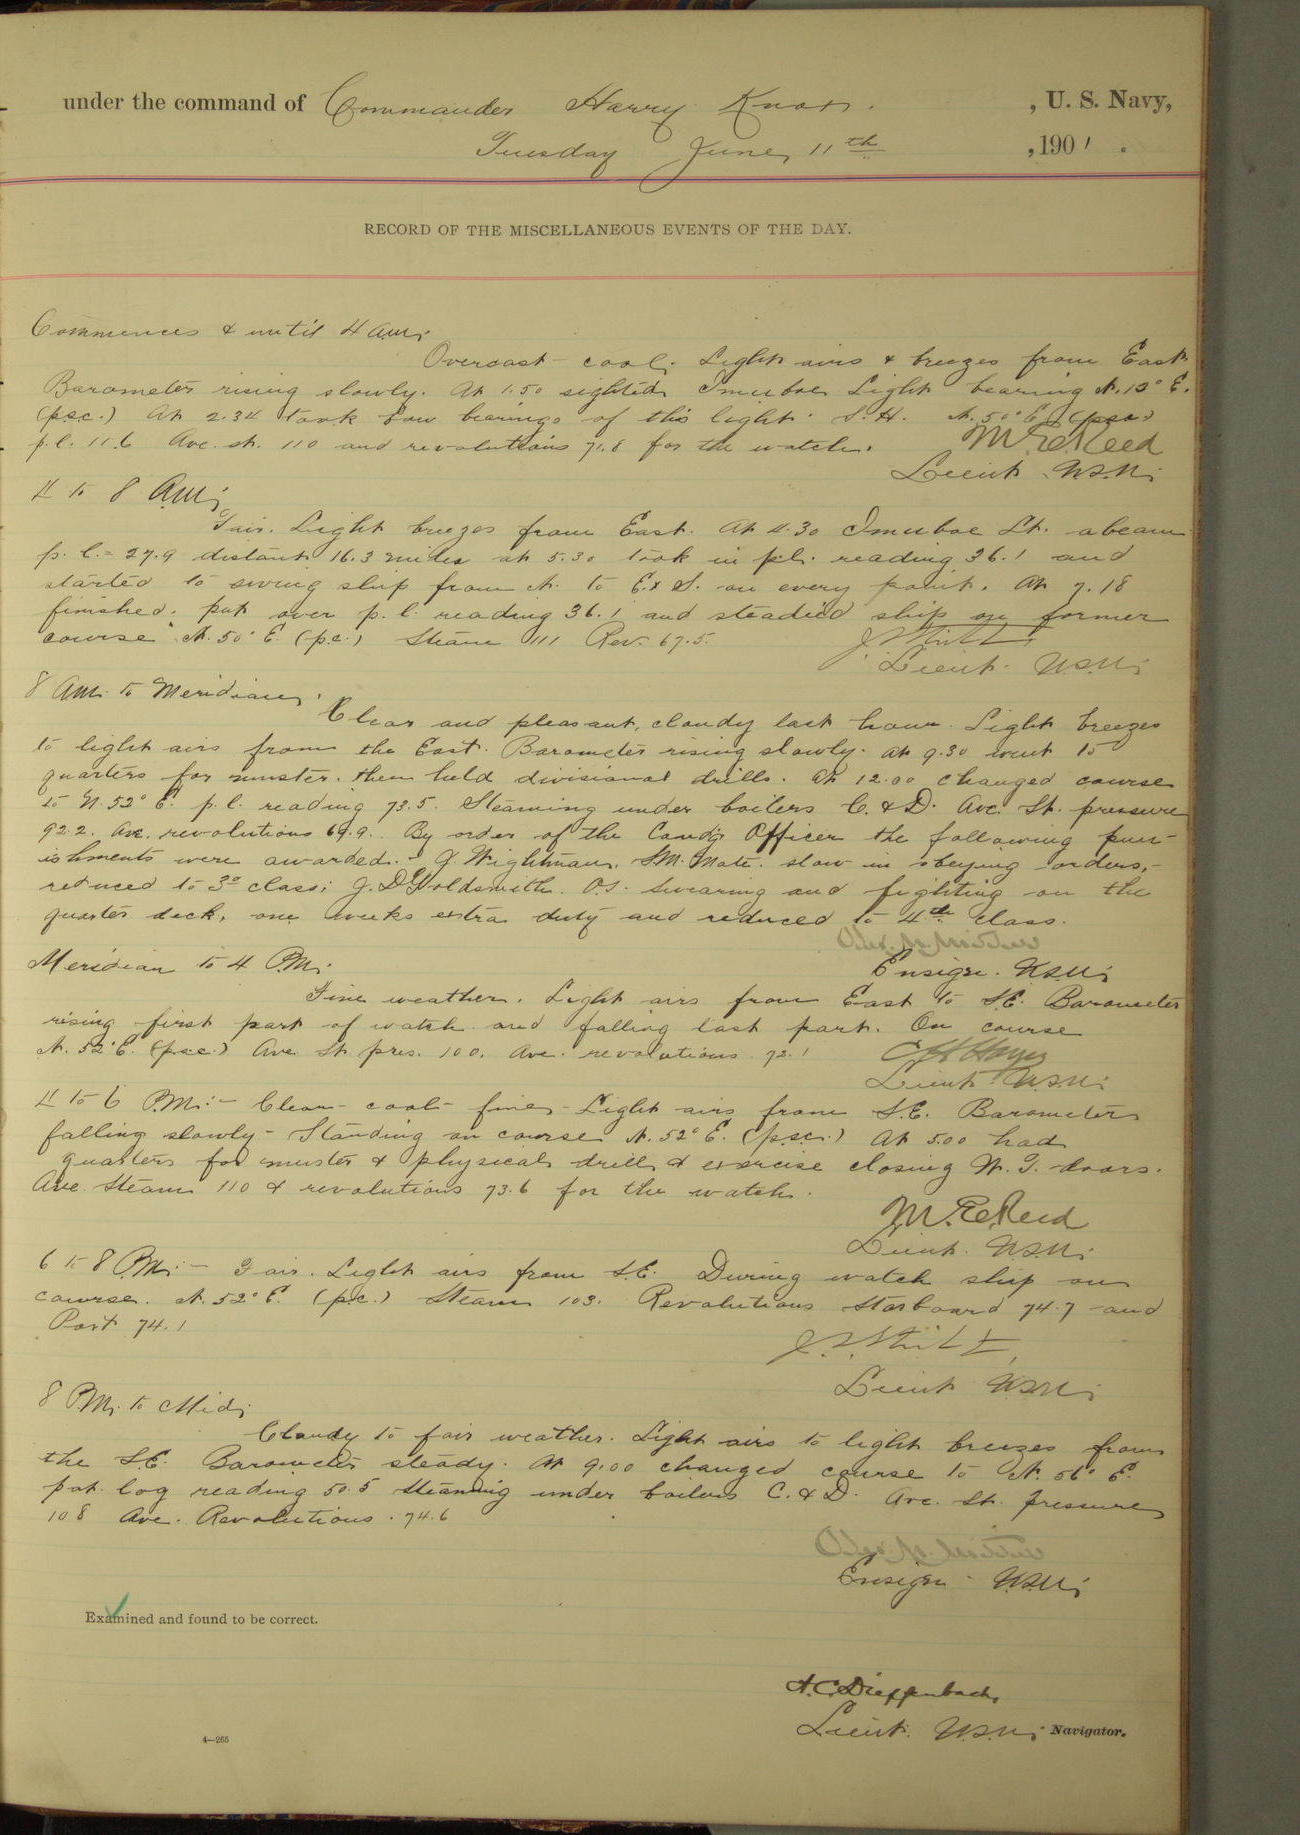 under the command of Commander Harry Knox. , U. S. Navy,
Tuesday June, 11th , 1901.
RECORD OF THE MISCELLANEOUS EVENTS OF THE DAY.
Commences & until 4 a.m.
Overcast - cool. Light airs & breezes from East.
Barometer rising slowly. At 1.50 sighted Imuboe Light bearing N. 13° E.
(psc.) At 2.34 took bow bearings of this light. S.H. N. 50° E. (psc.)
p.l. 11.6 Ave. st. 110 and revolutions 71.8 for the watch.
M. E. Reed
Lieut. U.S.N.
4 to 8 A.M.
Fair. Light breezes from East. At 4.30 Imuboe Lt. abeam
p.l. = 27.9 distant 16.3 miles at 5.30 took in p.l. reading 36.1 and
started to swing ship from N. to E. x S. on every point. At 7.18
finished. put over p.l. reading 36.1 and steadied ship on former
course N. 50° E. (p.c.) Steam 111 Rev. 67.5.
Lieut. U.S.N.
8 A.M. to Meridian.
Clear and pleasant, cloudy last hour. Light breezes
to light airs from the East. Barometer rising slowly. At 9.30 went to
quarters for muster. then held divisional drills. At 12.00 changed course
to N. 52° E. p.l. reading 73.5. Steaming under boilers C. & D. Ave. St. pressure
92.2. Ave. revolutions 69.9. By order of the Comd'g Officer the following pun-
ishments were awarded. - G. Wightman. SM. Mate. slow in obeying orders, -
reduced to 3d class; J. D. Goldsmith. O.S. Swearing and fighting on the
quarter deck, one weeks extra duty and reduced to 4th class.
Ensign. U.S.N.
Meridian to 4 P.M.
Fine weather. Light airs from East to S.E. Barometer
rising first part of watch and falling last part. On course
N. 52° E. (psc.) Ave. St. pres. 100. Ave. revolutions 72.1
Lieut. U.S.N.
4 to 6 P.M. - Clear - cool - fine - Light airs from S.E. Barometer
falling slowly - Standing on course N. 52° E. (psc.) At 5.00 had
quarters for muster & physical drill & exercise closing W. T. doors.
Ave. Steam 110 & revolutions 73.6 for the watch.
M. E. Reed
Lieut. U.S.N.
6 to 8 P.M. - Fair. Light airs from S.E. During watch ship on
course. N. 52° E. (p.c.) Steam 103. Revolutions Starboard 74.7 and
Port 74.1
Lieut. U.S.N.
8 P.M. to Mid.
Cloudy to fair weather. Light airs to light breezes from
the S.E. Barometer steady. At 9.00 changed course to N. 56° E.
pat. log reading 50.5 Steaming under boilers C. & D. Ave. St. pressure
108 Ave. Revolutions. 74.6
Ensign U.S.N.
Examined and found to be correct.
A. C. Dieffenbach,
Lieut. U.S.N. Navigator.
4—265